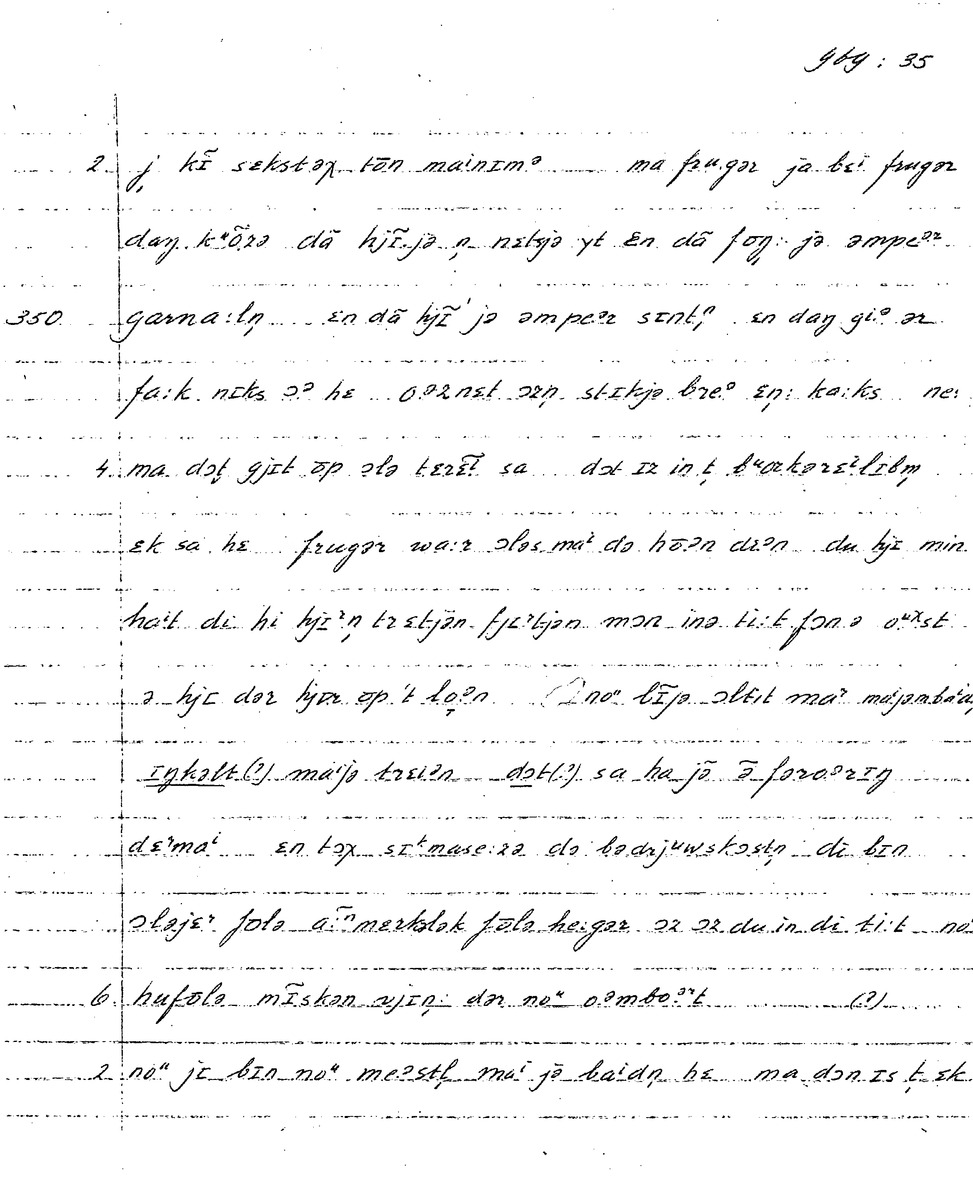 gbg : 35
2 j̩ kĩ sɛkstəχ tōn mainɪmᵊ ma frugər ja bɛi frugər
daŋ kᵘõrə dã hjĩjə n̩ nɛtsjə yt ɛn dã fɔŋ̩: jə əmpeᵊʳ
350 garna:ln̩ ɛn dã hjĩ' jə əmpeᵊr sɪntⁿ̩ ɛn daŋ giᵊ ər
fa:k nɪks ɔᵊ hɛ oᵊrnɛt ɔrn̩ stɪkjə breᵊ ɛn̩: ka:ks ne:
4 ma dət̩ gjɪt õp ɔlə tɛrɛ̃t sa dət ɪz in t̩ bᵘɑrkərɛⁱlɪbm̩
ɛk sa hɛ frugər wa:r ɔləs maⁱ də hõən dɪən du hjɪ min
haⁱt di hi hjɪʳn̩ trɛtjən fjɛʳtjən mɔn inə ti:t fɔn ə oᵘˣst
ə hjɪ dər hjɪr õp 't lo̞ᵊn noᵘ bĩjə ɔltɪt maʳ
ɪŋkəlt(?) maⁱjə trɛiᵊn dɔt(?) sa ha jə̄ ə̄ fəroᵊrɪŋ
dɛʳmaⁱ ɛn tɔχ sɪᵗmase:rə də bədrjᵘwskɔstn̩ di bɪn
ɔləjɛʳ følə a:ⁿmerkələk fōlə he:gər ɔz ɔz du in di ti:t no
6 hufōlə mĩskən ʋjɪn̩: dər noᵘ oᵊmboᵊʳt (?)
2 noᵘ jɪ bɪn noᵘ meᵊstl̩ maⁱ jə baidn̩ hɛ ma dɔn ɪs t̩ ɛk